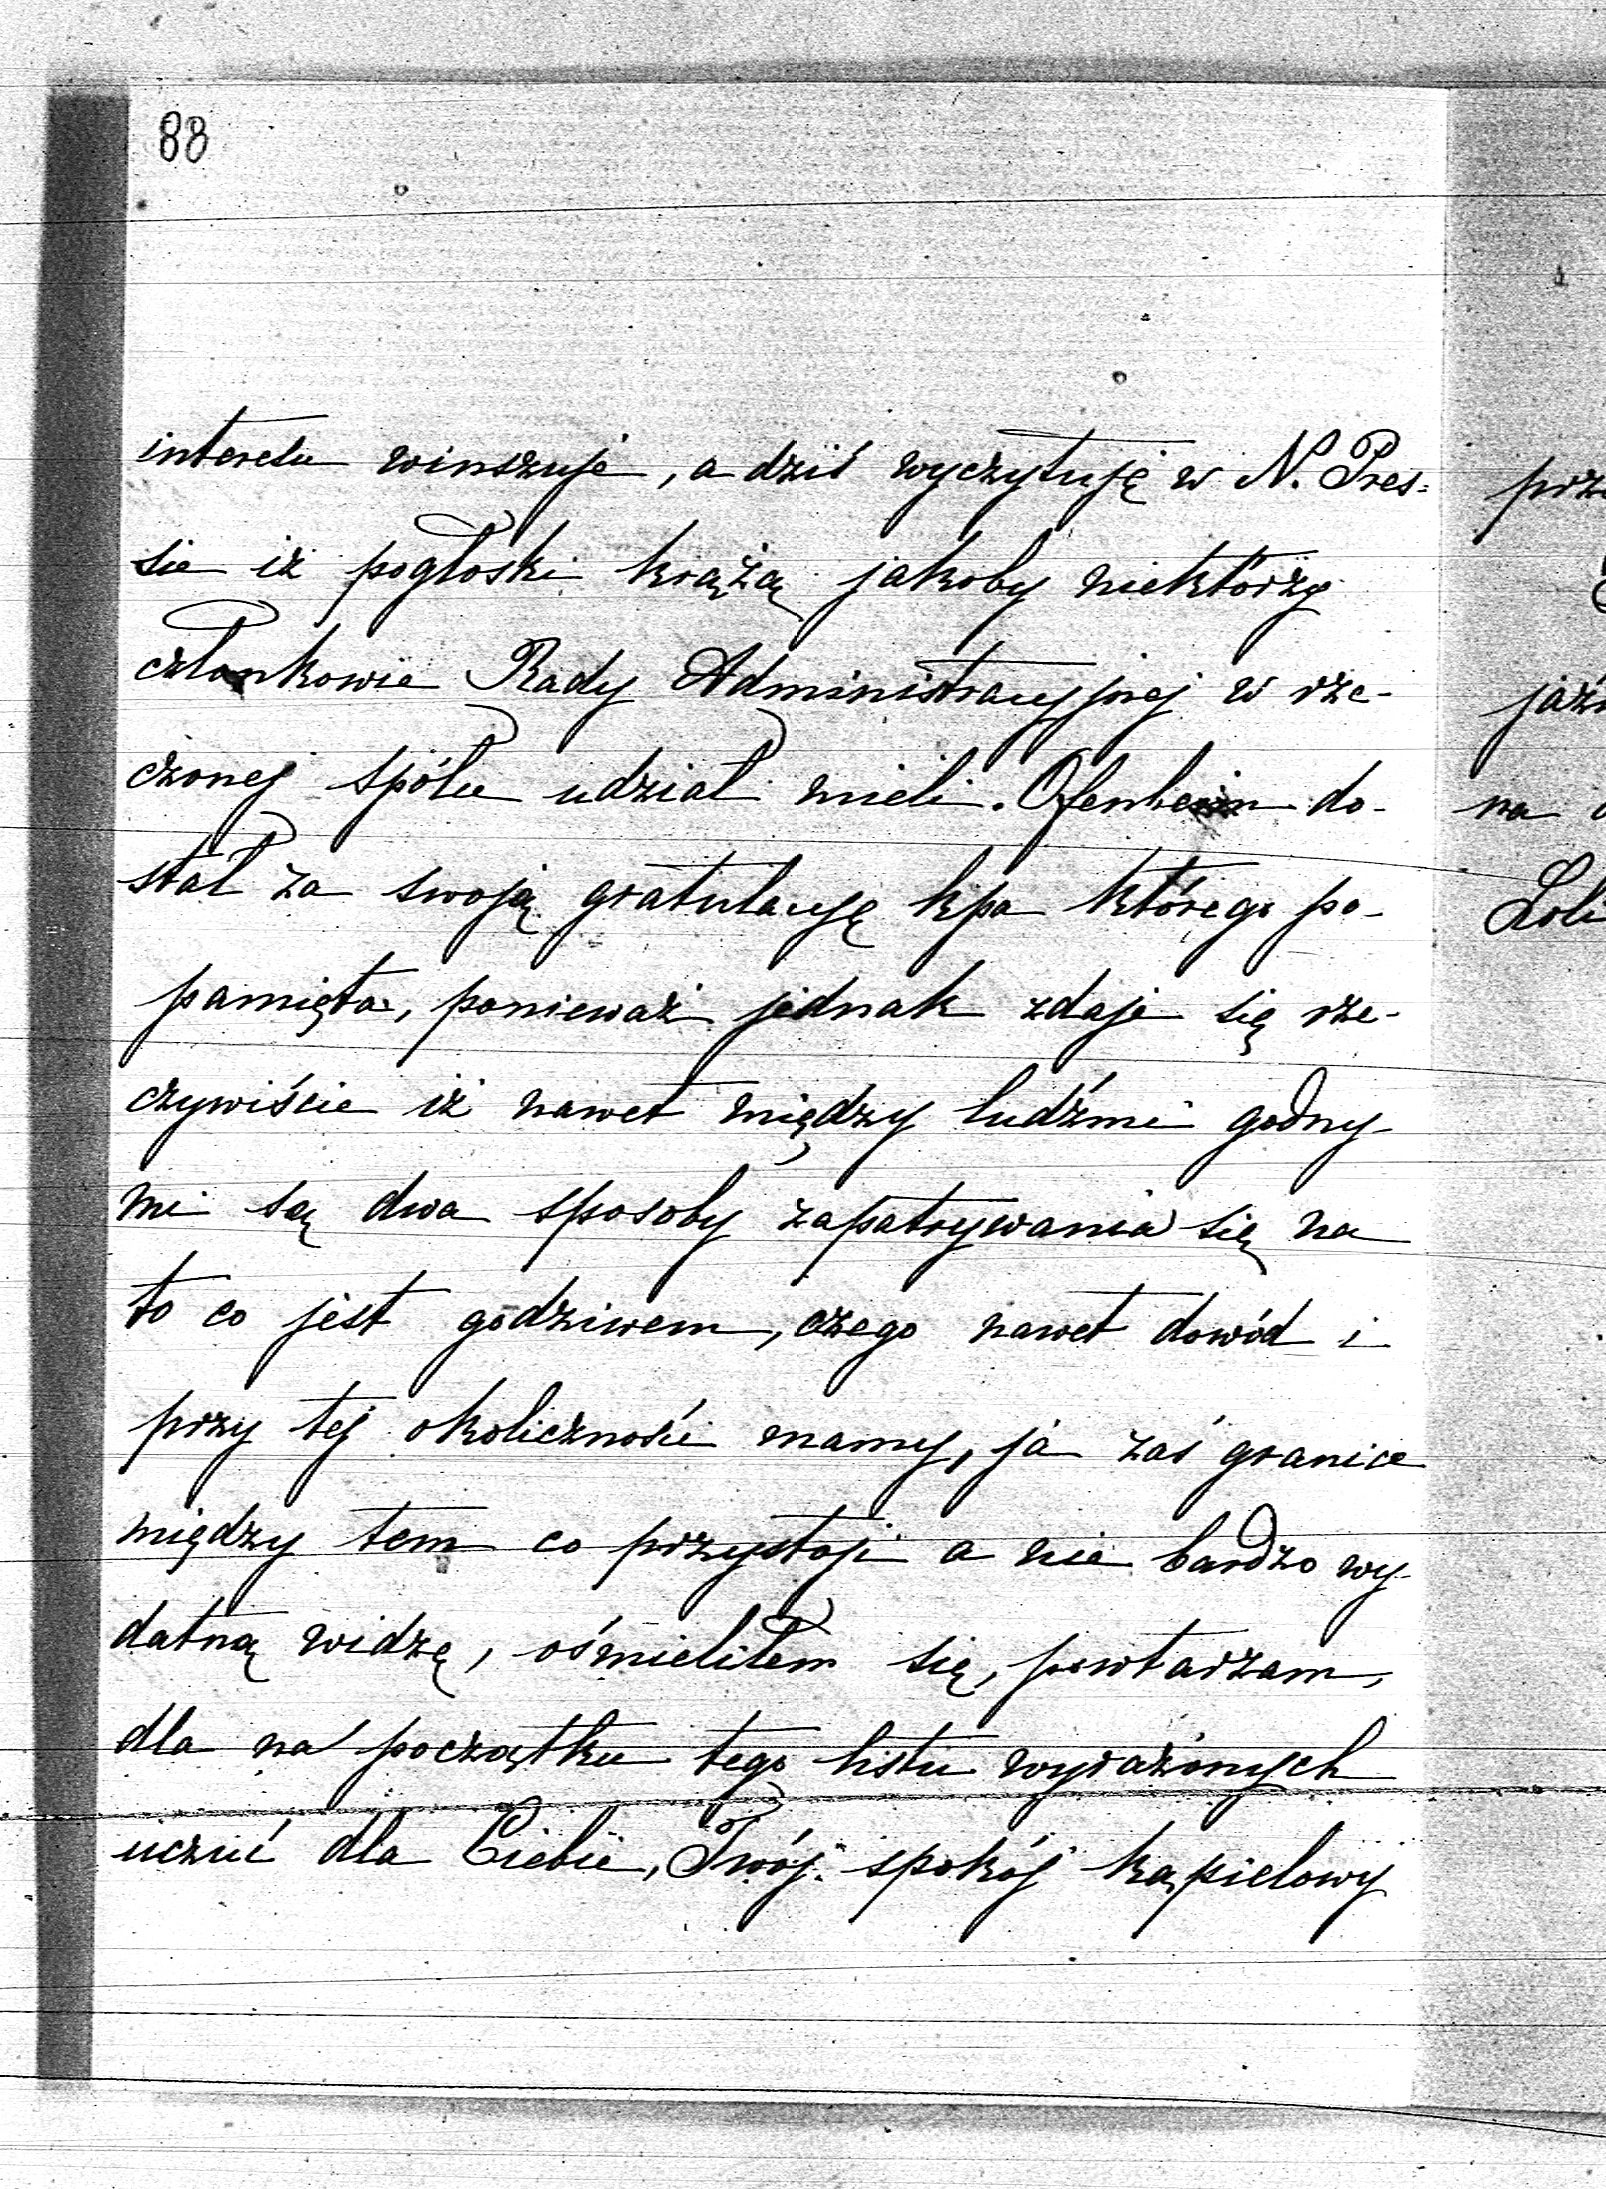 88
interesu winszuje, a dziś wyczytuję w N. Pres=
sie iż pogłoski krążą jakoby niektórzy
członkowie Rady Administracyjnej w rze-
czonej spółce udział mieli. Ofenheim do-
stał za swoją gratulacyję kpa którego po-
pamięta, ponieważ jednak zdaje się rze-
czywiście iż nawet między ludźmi godny-
mi są dwa sposoby zapatrywania się na
to co jest godziwem, czego nawet dowód i
przy tej okoliczności mamy, ja zaś granice
między tem co przystoji a nie bardzo wy-
datną widzę, ośmieliłem się, powtarzam,
dla na początku tego listu wyrażonych
uczuć dla Ciebie, Twój spokój kąpielowy